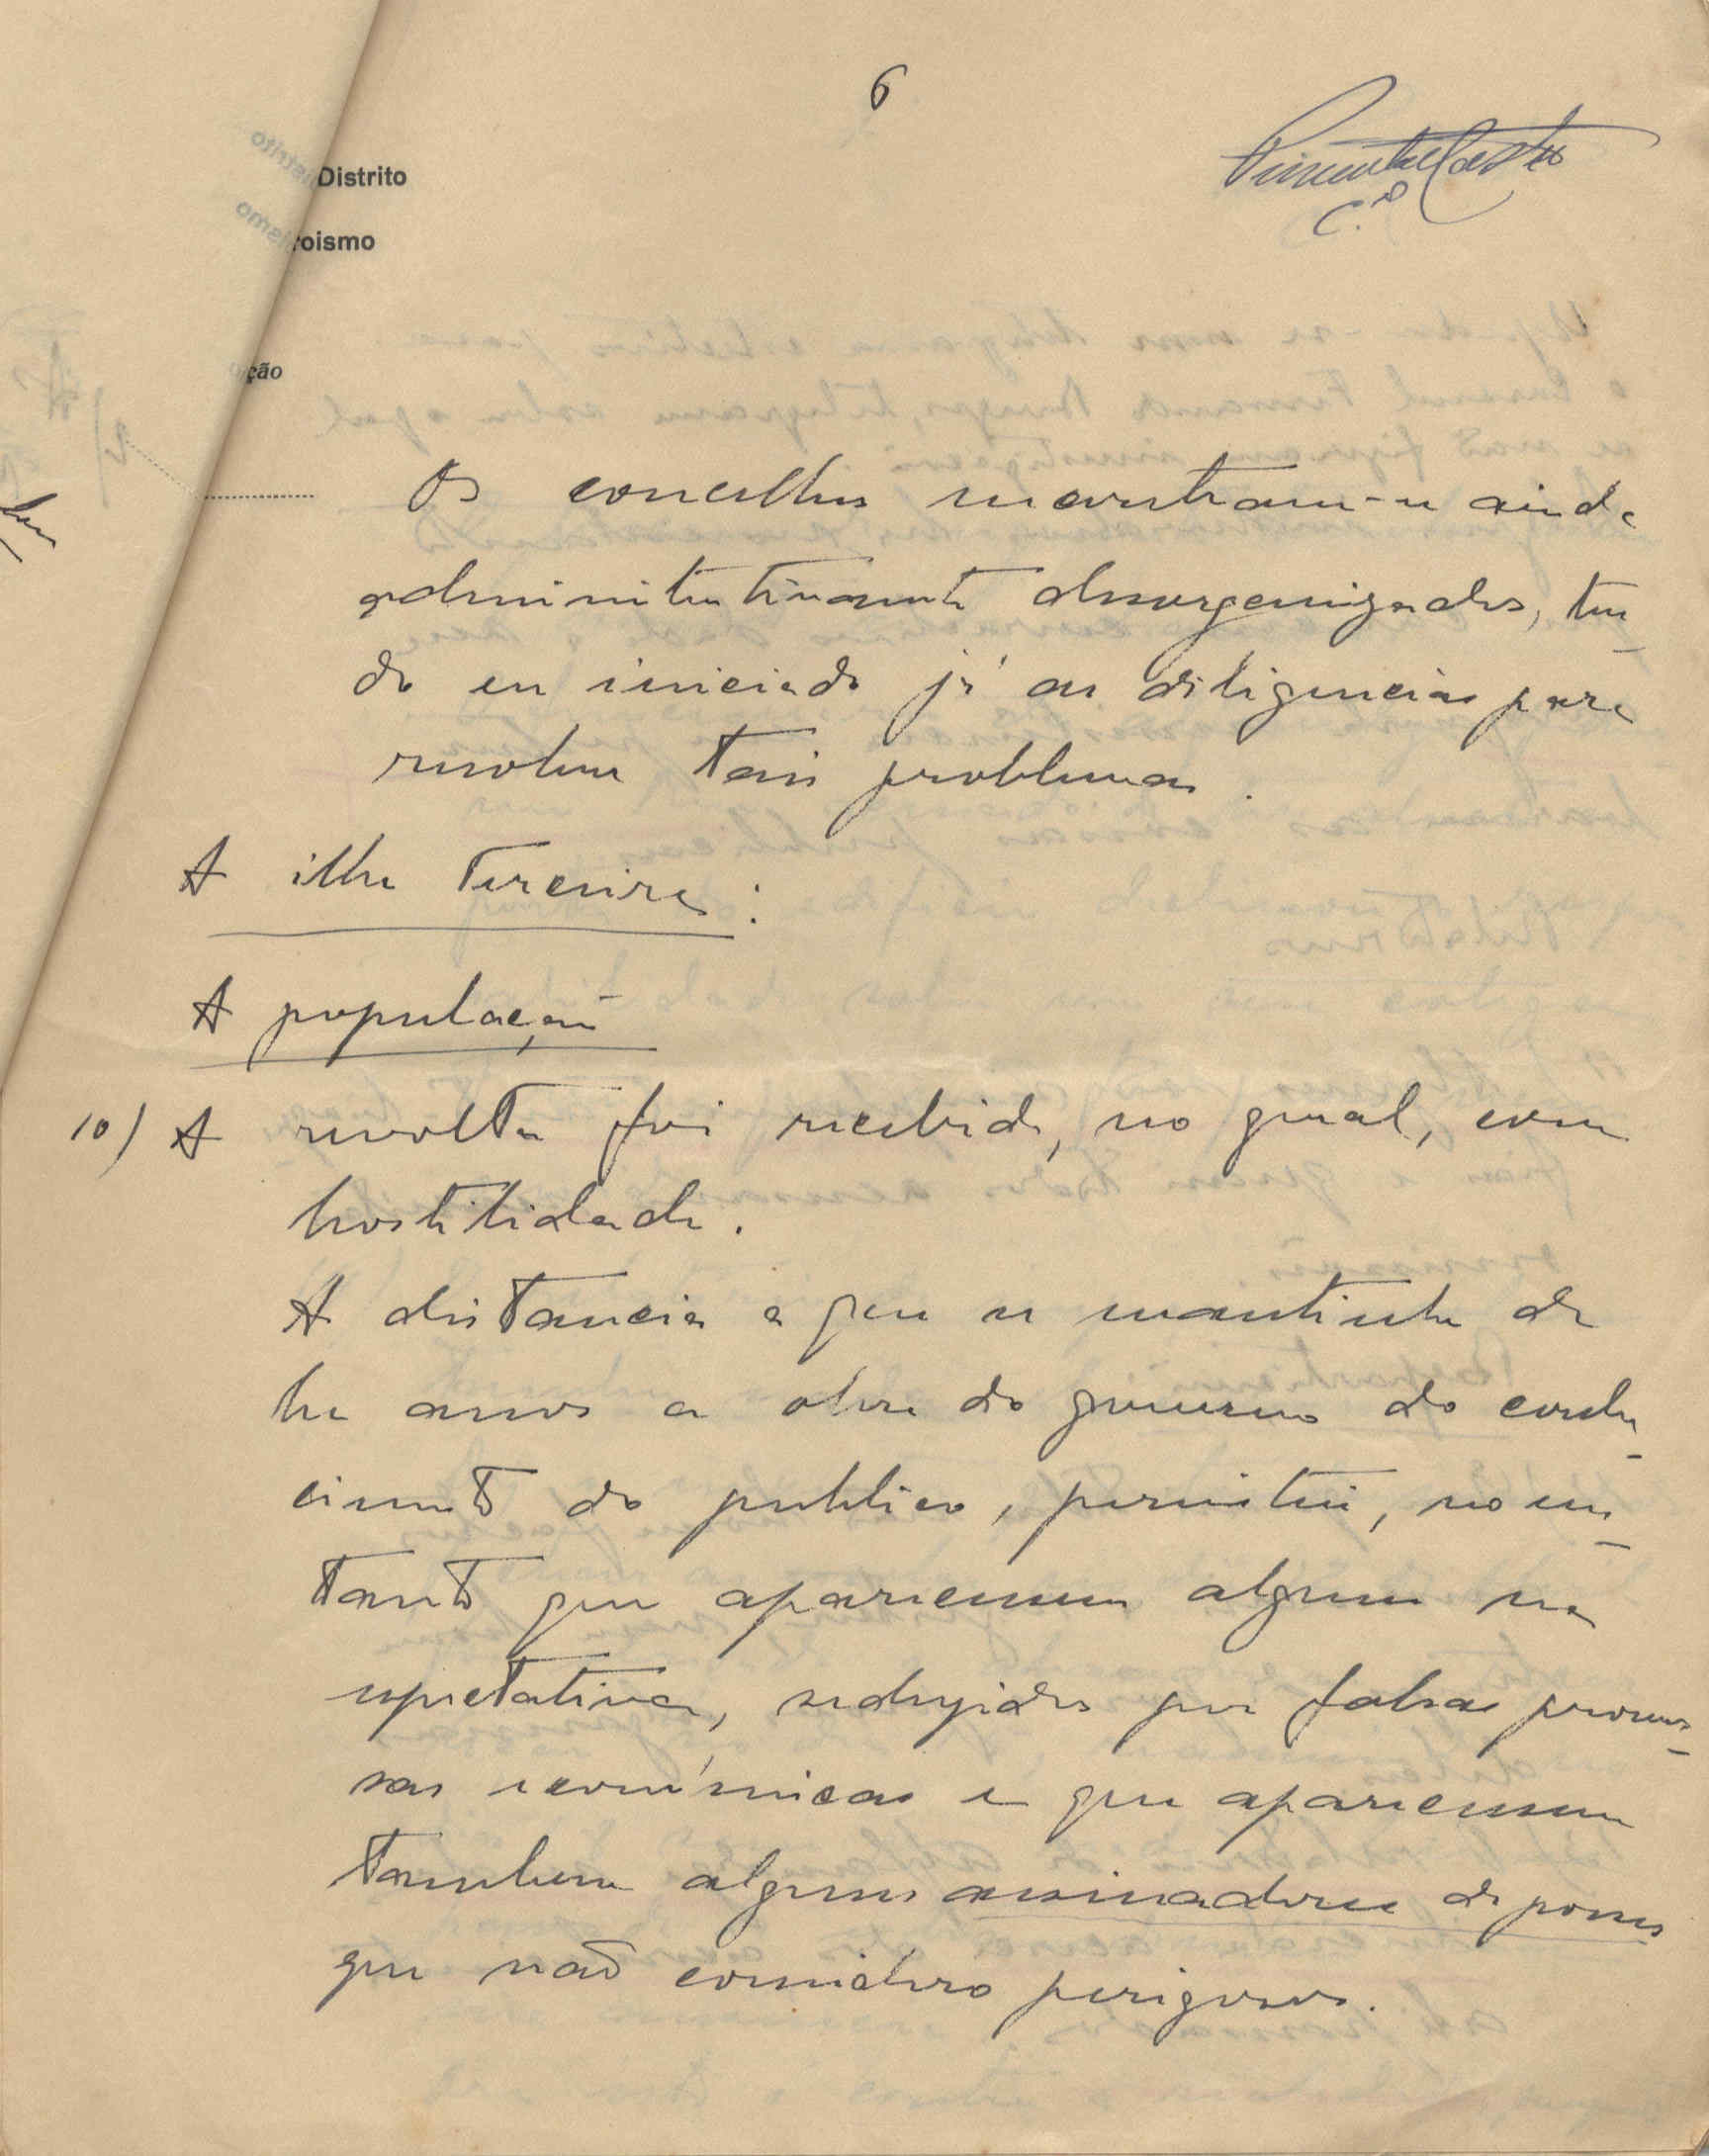 6
Pimenta de Castro
C.el
Distrito
roismo
ção
Os concelhos mostram-se ainda
administrativamente desorganizados, ten-
do eu iniciado já as diligencias para
resolver tais problemas.
A ilha Terceira:
A população
10) A revolta foi recebida, no geral, com
hostilidade.
A distancia a que se mantinha de
ha anos a obra do governo do conhe-
cimento do publico, permitiu, no en-
tanto que aparecessem alguns na
espectativa, seduzidos por falsas promes-
sas económicas e que aparecessem
tambem alguns assinadores de posses
que não considero perigosos.